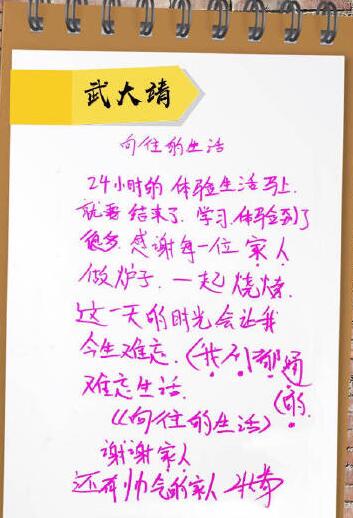 武大靖
向往的生活
24小时的体验生活马上
就要结束了.学习.体验到了
很多.感谢每一位家人
做炉子.一起烧烤.
这一天的时光会让我
今生难忘.(我们都通
难忘生活 (的.
《向往的生活》
谢谢家人
还有帅气的家人